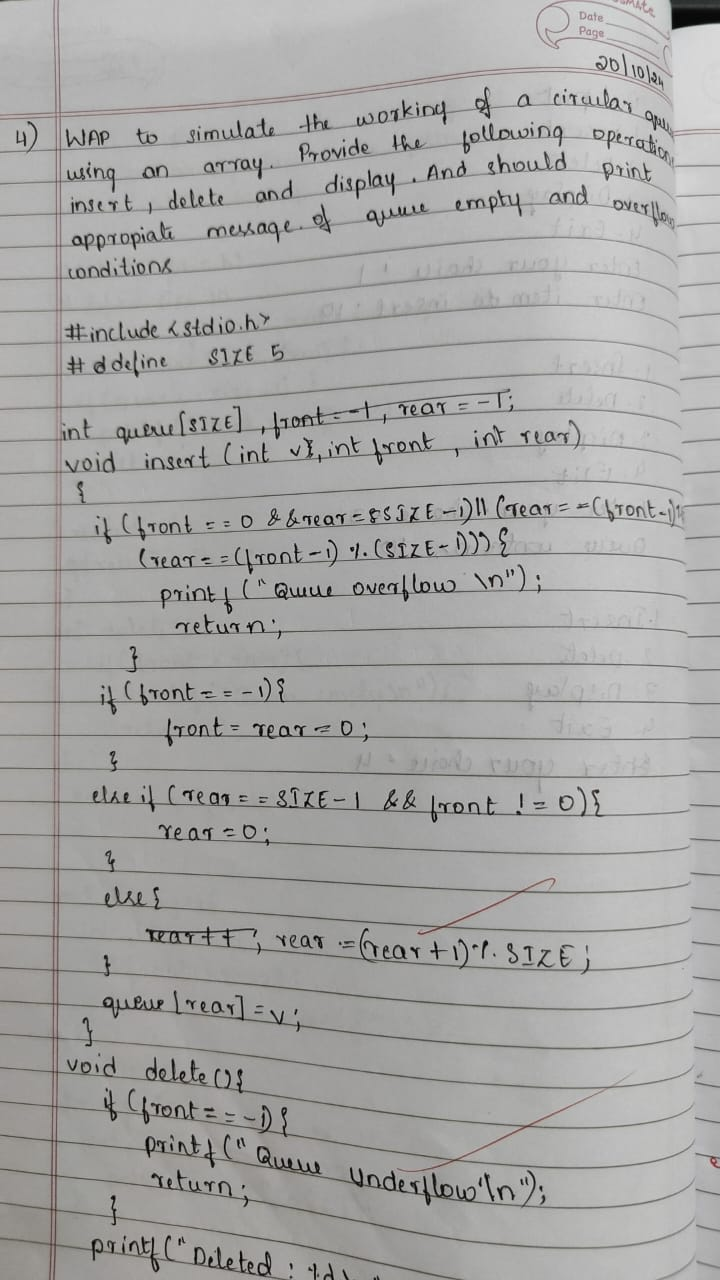 Date
Page
20/10/24
4) WAP to simulate the working of a circular
using an array. Provide the following operation
insert, delete and display. And should print
appropiate message of queue empty and overflow
conditions
#include <stdio.h>
# d define SIZE 5
int queue[SIZE], front = -1, rear = -1;
void insert (int v}, int front, int rear)
{
if (front == 0 && rear = SIZE-1) || (rear == (front-1)%
(rear == (front-1) % (SIZE-1))) {
printf ("Queue overflow \n");
return;
}
if (front == -1) {
front = rear = 0;
}
else if (rear == SIZE-1 && front != 0) {
rear = 0;
}
else {
rear++; rear = (rear+1) % SIZE;
}
queue [rear] = v;
}
void delete () {
if (front == -1) {
printf (" Queue Underflow \n");
return;
}
printf (" Deleted : %d\